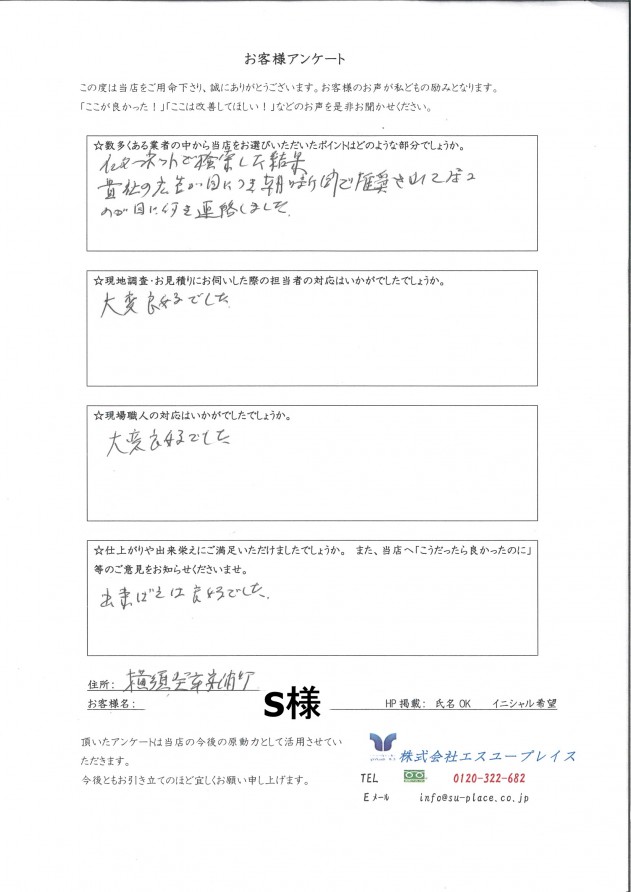 お客様アンケート
この度は当店をご用命下さり、誠にありがとうございます。お客様のお声が私どもの励みとなります。
「ここが良かった!」「ここは改善してほしい!」などのお声を是非お聞かせください。
☆数多くある業者の中から当店をお選びいただいたポイントはどのような部分でしょうか。
インターネットで検索した結果
貴社の広告が目につき朝日新聞で推奨されてぼっ
のが目に付き連絡しました.
☆現地調査・お見積りにお伺いした際の担当者の対応はいかがでしたでしょうか。
大変良好でした
☆現場職人の対応はいかがでしたでしょうか。
大変良好でした
☆仕上がりや出来栄えにご満足いただけましたでしょうか。 また、当店へ「こうだったら良かったのに」
等のご意見をお知らせくださいませ。
出来ばえは良好でした.
住所: 横須賀市
お客様名: S様 HP掲載: 氏名OK イニシャル希望
頂いたアンケートは当店の今後の原動力として活用させてい
ただきます。
今後ともお引き立てのほど宜しくお願い申し上げます。
株式会社エスユープレイス
TEL 0120-322-682
Eメール info@su-place.co.jp